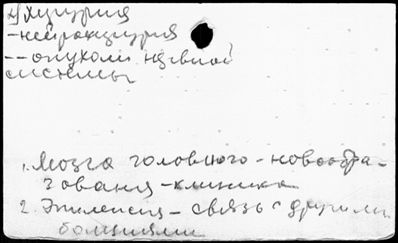 Хирургия
-нейрохирургия
--опухоли нервной
системы
1. Мозга головного - новообра-
зования - клиника
2. Эпилепсия - связь с другими
болезнями